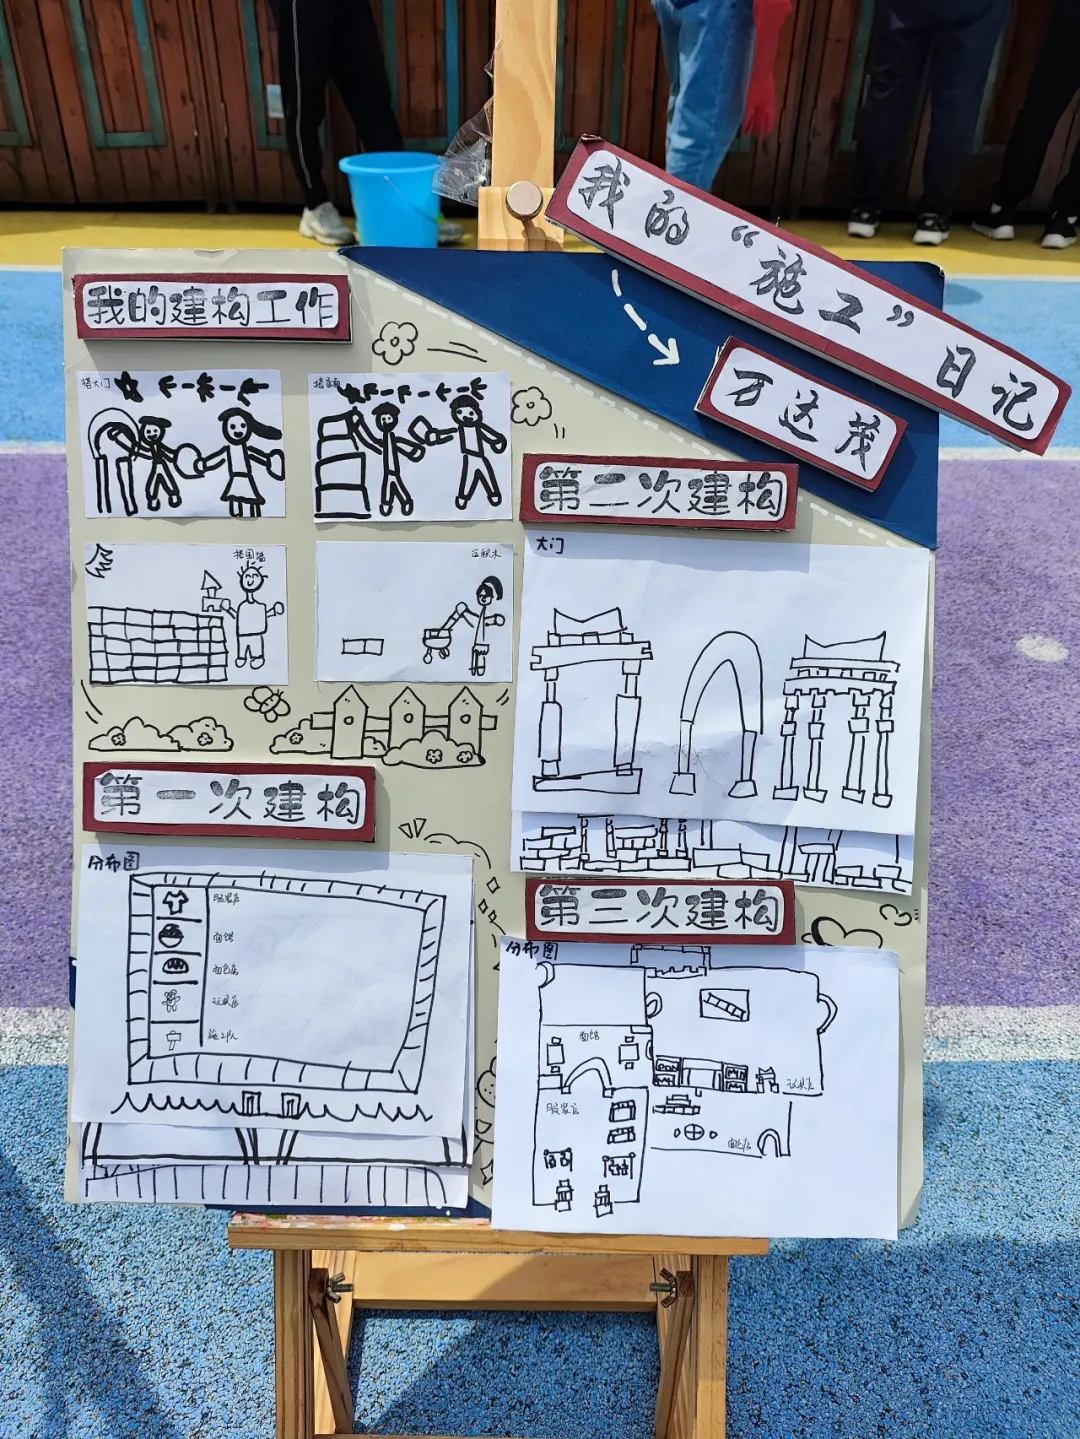 我的“施工”日记
万达茂
我的建构工作
搭大门
搭店面
搭围墙
运积木
第一次建构
分布图
服装店
面馆
面包店
玩具店
施工队
第二次建构
大门
第三次建构
分布图
面馆
玩具店
服装店
面包店